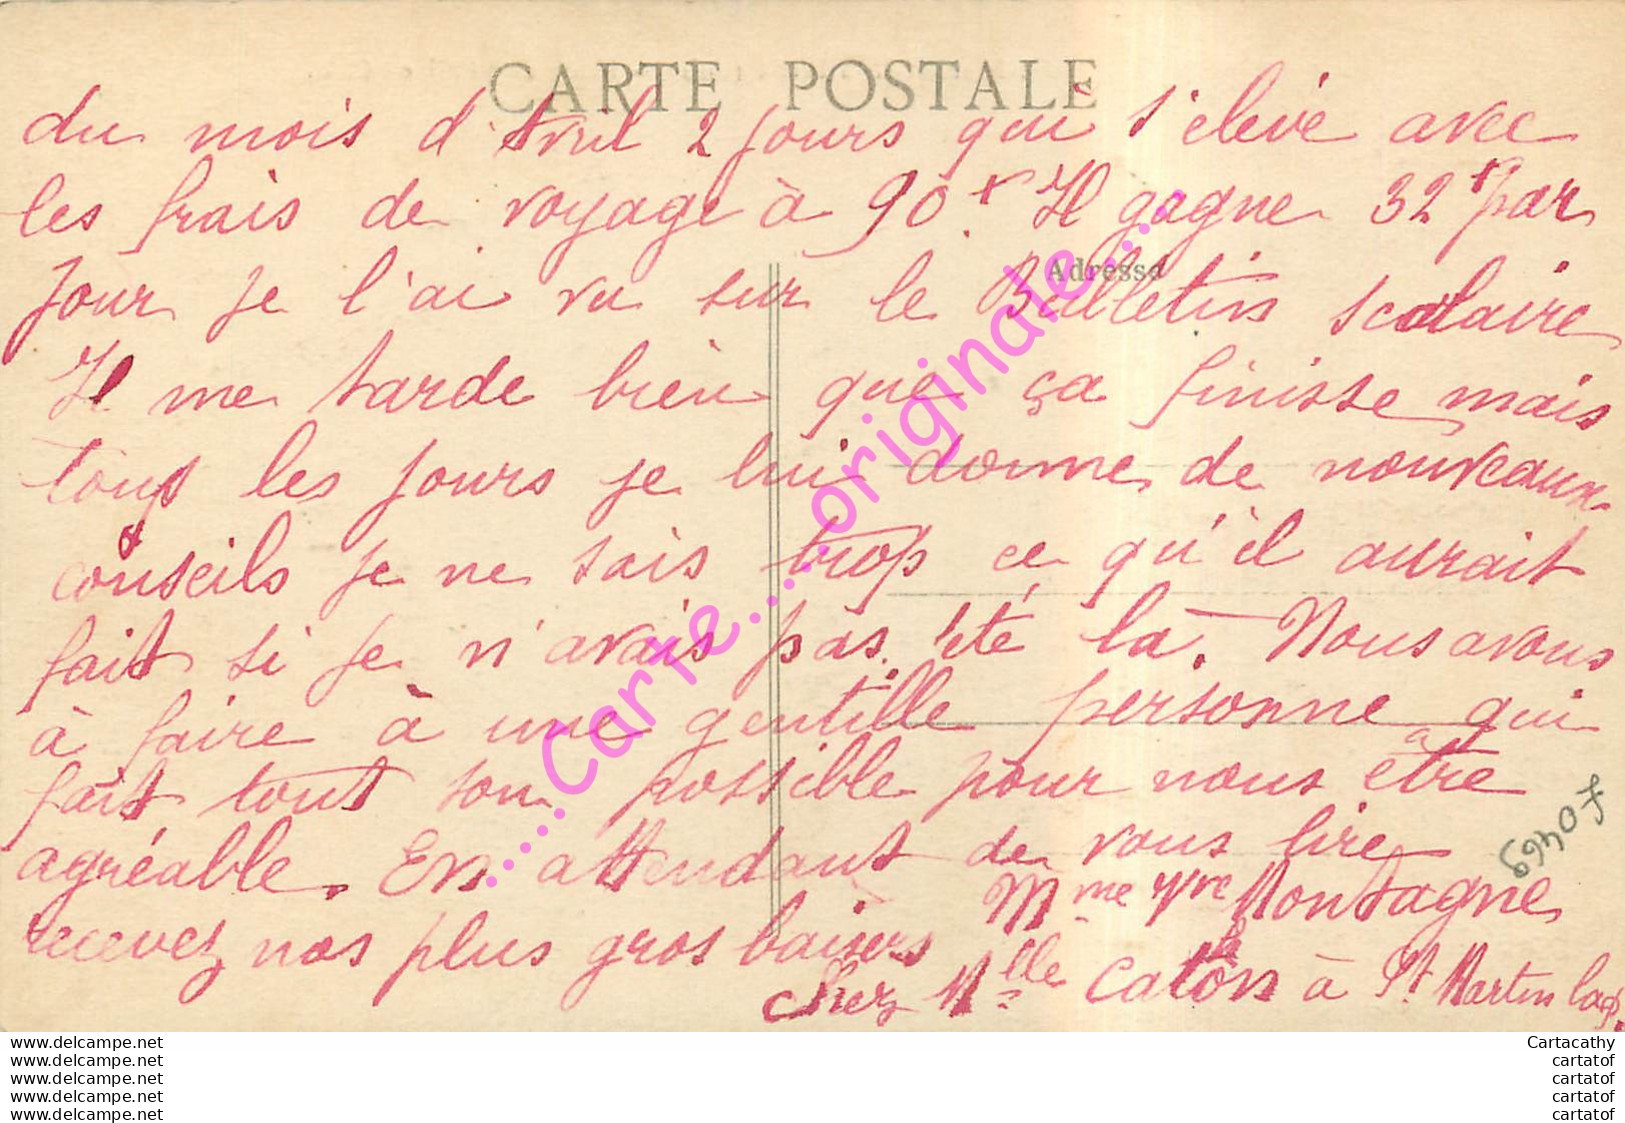 CARTE POSTALE
du mois d'Avril 2 jours qui s'élève avec
les frais de voyage à 90f Il gagne 32f par
jour je l'ai vu sur le Bulletin scolaire
Adresse
Il me tarde bien que ça finisse mais
tous les jours je lui donne de nouveaux
conseils je ne sais trop ce qu'il aurait
fait si je n'avais pas été là. Nous avons
à faire à une gentille personne qui
fait tout son possible pour nous être
agréable. En attendant de vous lire
recevez nos plus gros baisers
Mme Vve Montagne
chez Mlle Calon à St Martin
69407
.....Carte.....originale.....
www.delcampe.net
www.delcampe.net
www.delcampe.net
www.delcampe.net
www.delcampe.net
Cartacathy
cartatof
cartatof
cartatof
cartatof